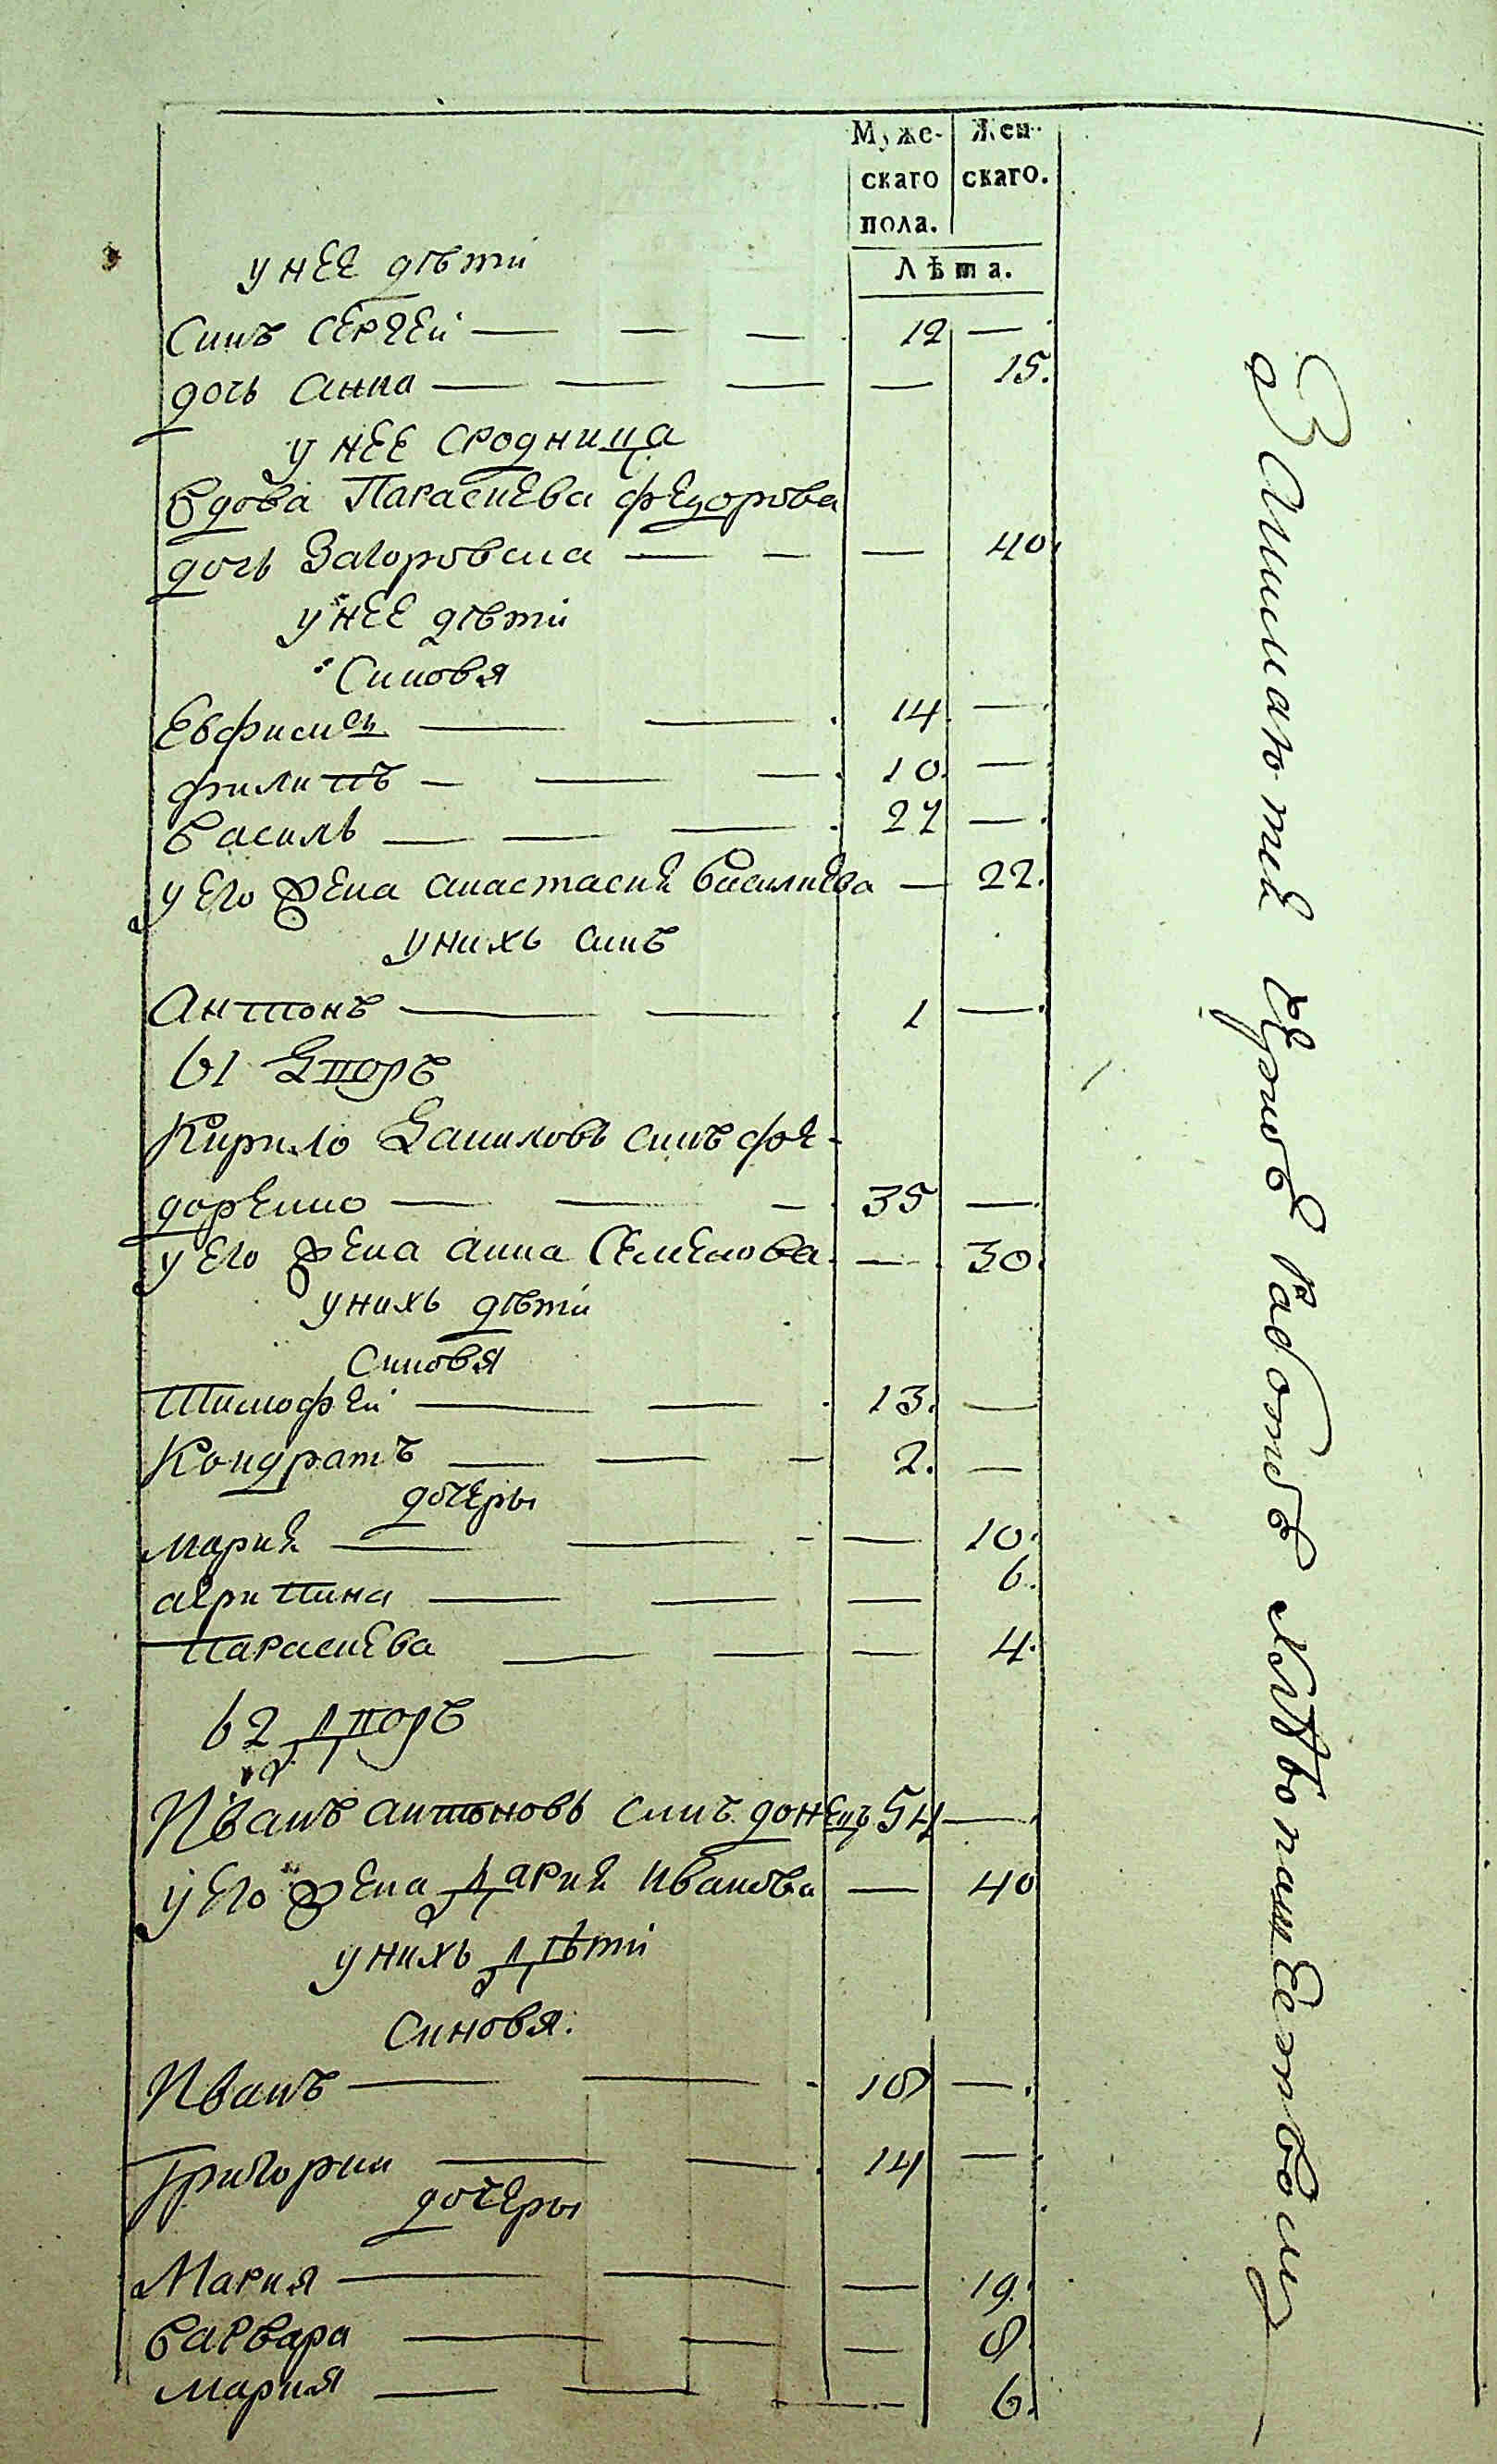 Муже- Жен-
скаго скаго.
пола.
Лѣта.
у нее дѣти
Синъ Сергей — — — 12 —
дочь Анна — — — — 15.
у нее сродница
Вдова Параскева Федорова
дочь Загоровска — — — 40
у нее дѣти
Синовя
Евфимій — — 14 —
Филипъ — — — 10 —
Василь — — — 27 —
у его жена Анастасия Василиева — 22.
у нихъ синъ
Антонъ — — 1 —
61 Дворъ
Кирило Даниловъ синъ Фе-
доренко — — — 35 —
у его жена Анна Семенова — 30.
у нихъ дѣти
Синовя
Тимофей — — 13. —
Кондратъ — — — 2. —
дочеры
Мария — — — — 10.
Агрипина — — — 6.
Параскева — — — 4.
62 Дворъ
Иванъ Антоновъ синъ Донецъ 54 —
у его жена Дария Иванова — 40
у нихъ дѣти
Синовя.
Иванъ — — - 18 —
Григорий — — 14 —
дочеры
Мария — — — 19.
Варвара — — — 8.
Мария — — — 6.